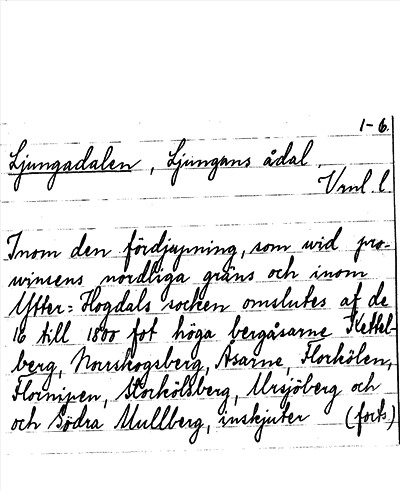 1-6.
Ljungadalen, Ljungans ådal.
Vml. l.
Inom den fördjupning, som wid pro-
winsens nordliga gräns och inom
Ytter=Hogdals socken omslutes af de
16 till 1800 fot höga bergåsarne Flettel-
berg, Norrskogsberg, Åsarne, Florhölen,
Flornipen, Storhölsberg, Ursjöberg och
och Södra Mullberg, inskjuter (forts.)